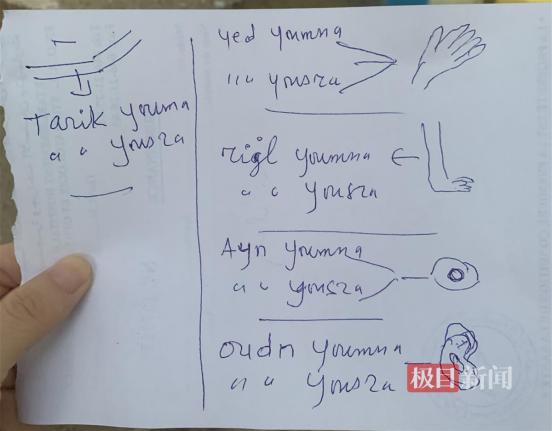 Tarik youma
" " yousra
yed youmna
" " yousra
rigl youmna
" " yousra
Ayn youmna
" " yousra
oudn youmna
" " yousra
极目新闻